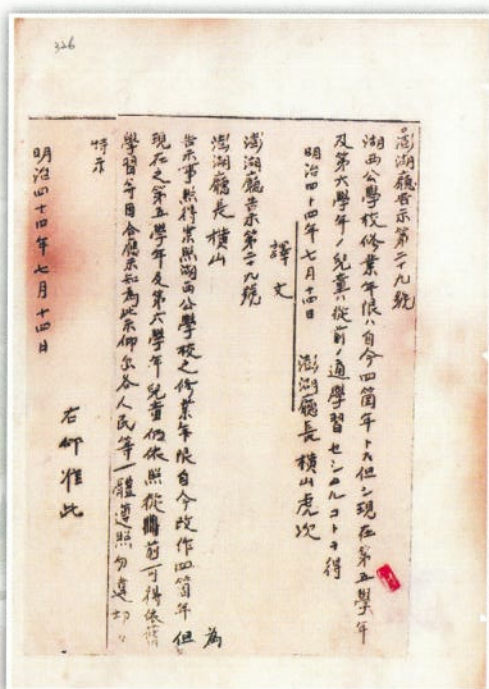 326
澎湖廳告示第二十九號
湖西公學校修業年限ハ自今四箇年トス但シ現在第五學年
及第六學年ノ兒童ハ從前ノ通學習セシムルコトヲ得
明治四十四年七月十四日 澎湖廳長 橫山虎次
譯文
澎湖廳告示第二十九號
澎湖廳長 橫山 為
告示事照得案照湖西公學校之修業年限自今改作四箇年但
現在之第五學年及第六學年兒童仍依照從前可得依舊
學習等因合應示知為此示仰各人民等一體遵照勿違切切
特示
右仰准此
明治四十四年七月十四日